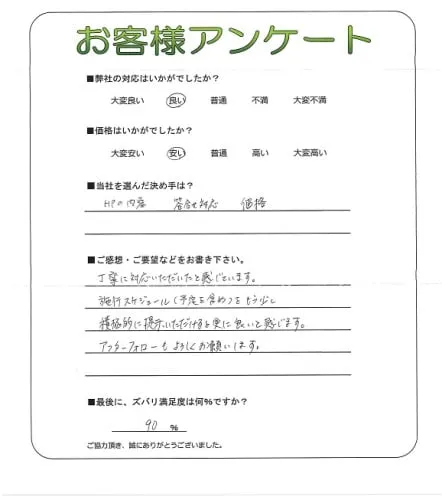 お客様アンケート
■弊社の対応はいかがでしたか?
大変良い 良い 普通 不満 大変不満
■価格はいかがでしたか?
大変安い 安い 普通 高い 大変高い
■当社を選んだ決め手は?
HPの内容 対応 価格
■ご感想・ご要望などをお書き下さい。
丁寧に対応いただいたと感じています。
施行スケジュール(予定を含め)をもう少し
積極的に提示いただけると更に良いと感じます。
アフターフォローもよろしくお願いします。
■最後に、ズバリ満足度は何%ですか?
90 %
ご協力頂き、誠にありがとうございました。